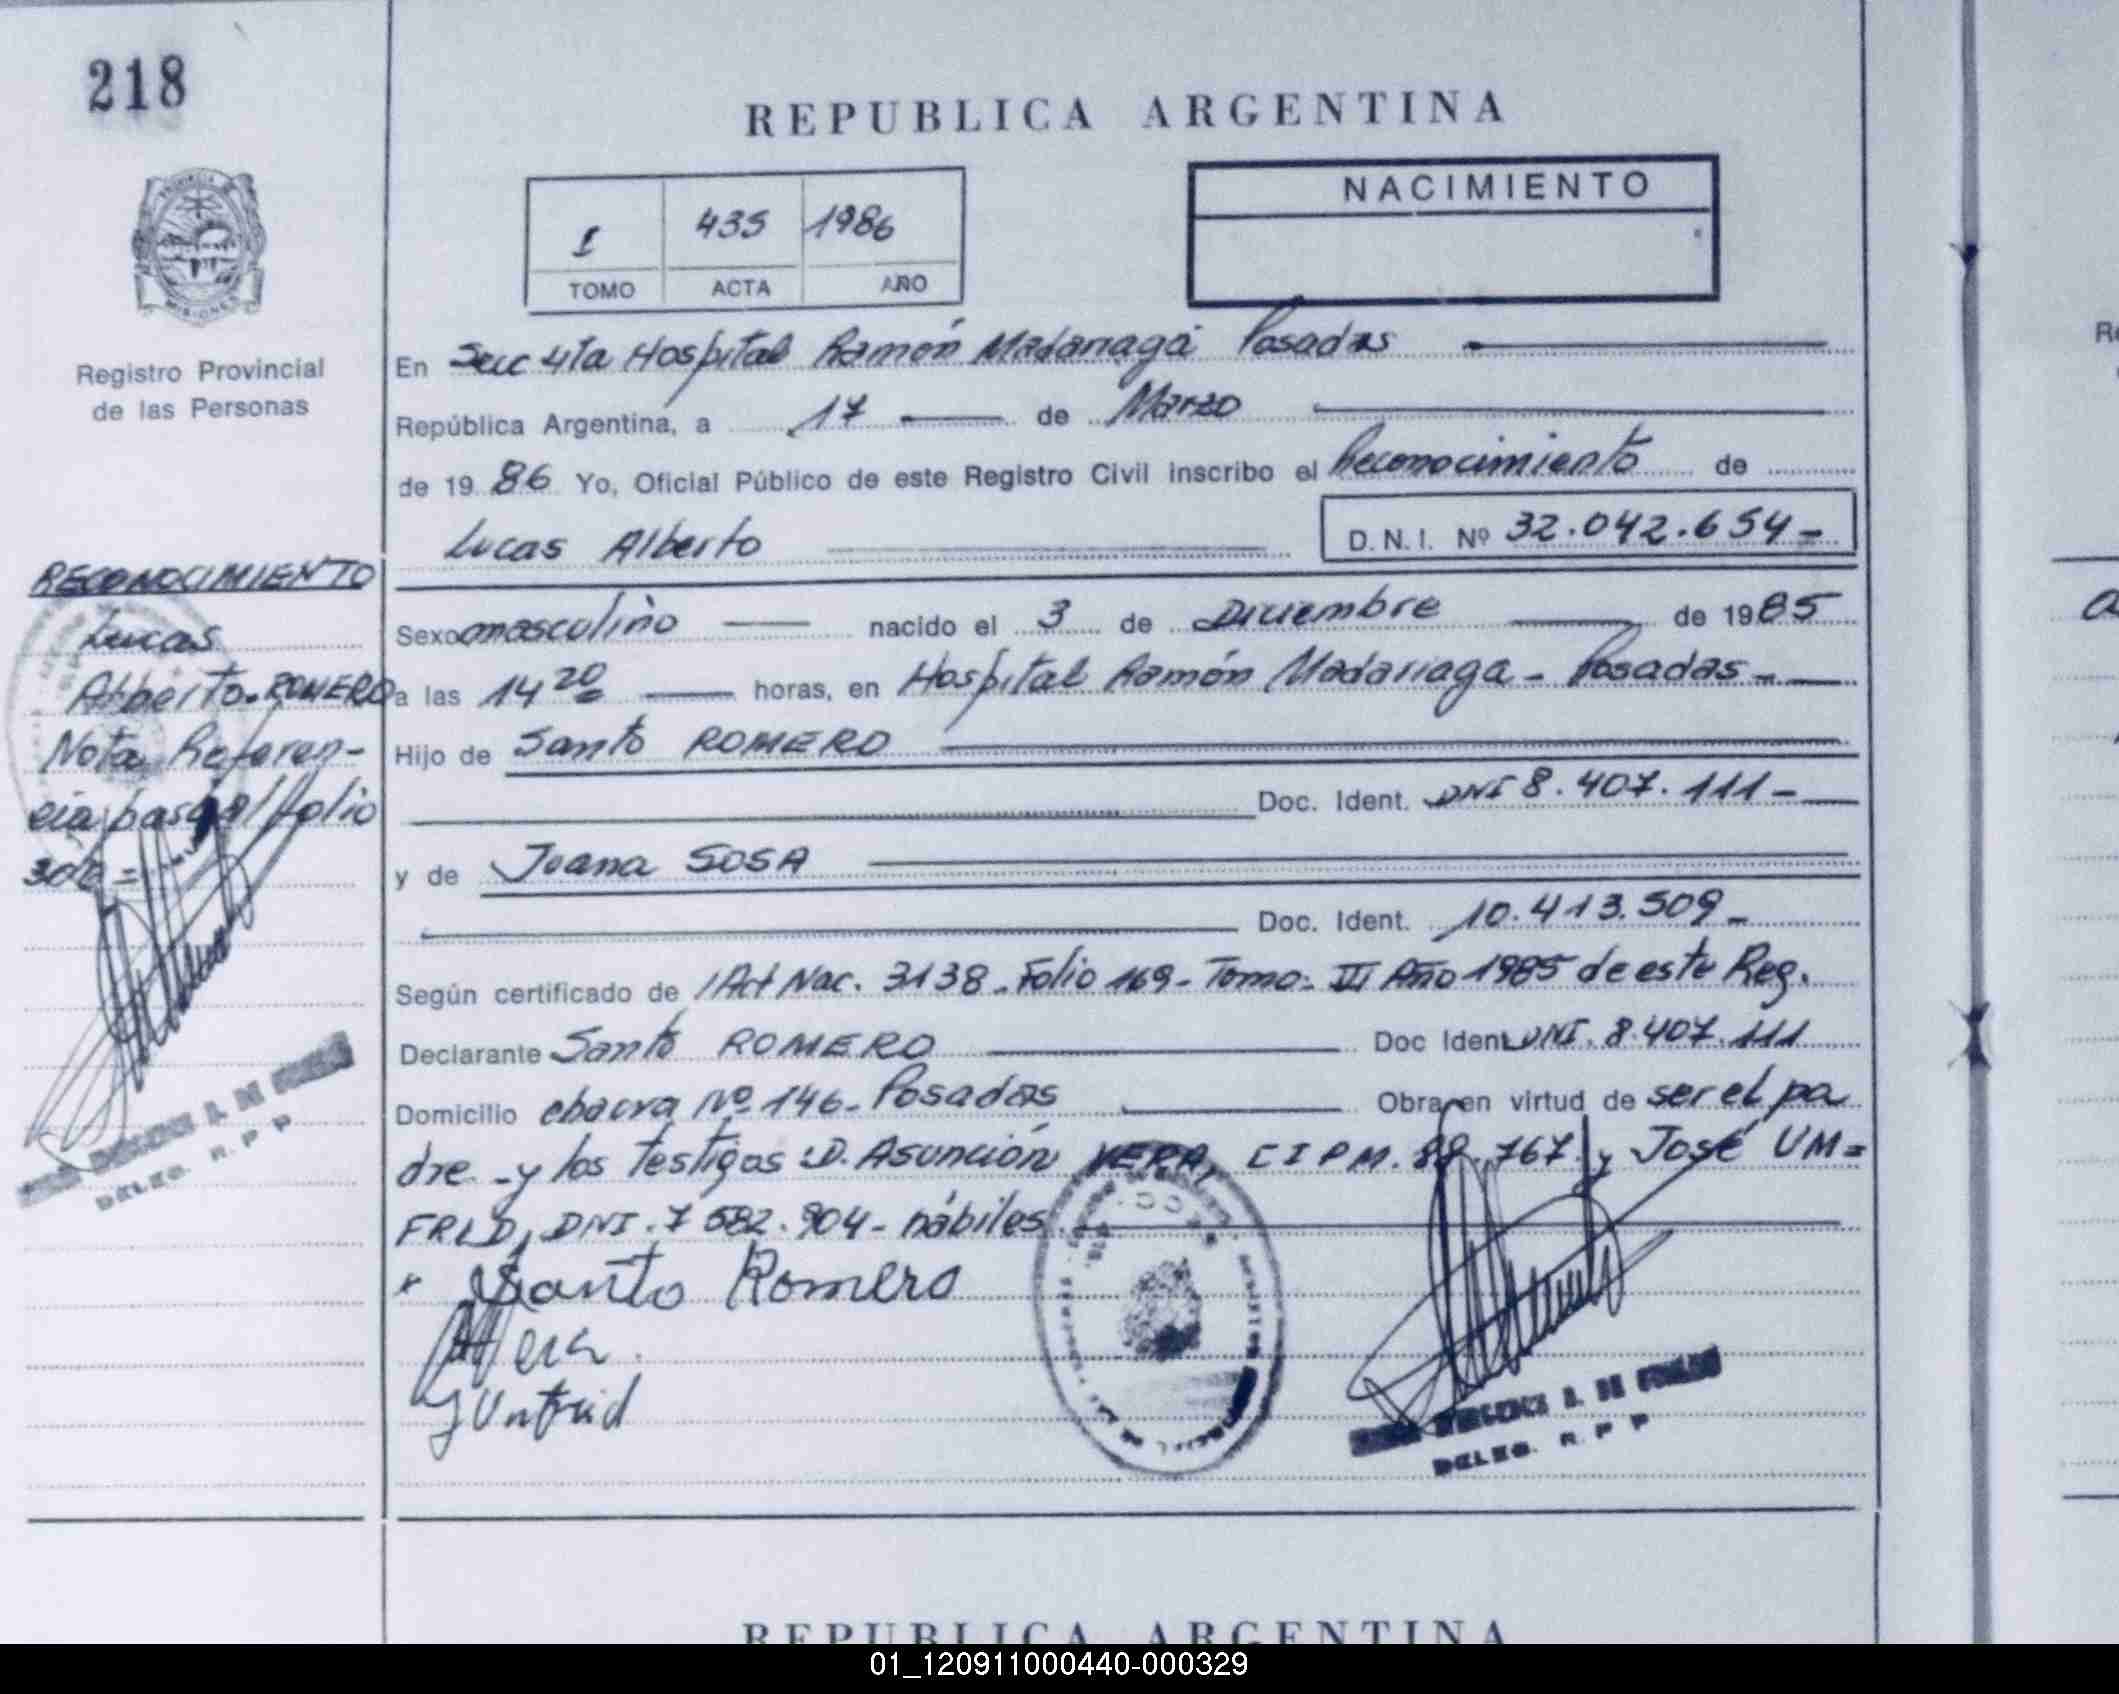 218
REPUBLICA ARGENTINA
NACIMIENTO
I 435 1986
TOMO ACTA AÑO
PROVINCIA DE
MISIONES
Registro Provincial
de las Personas
En Secc 4ta Hospital Ramón Madariaga Posadas
República Argentina, a 17 de Marzo
de 19 86 Yo, Oficial Público de este Registro Civil inscribo el Reconocimiento de
Lucas Alberto D.N.I. Nº 32.042.654-
RECONOCIMIENTO
Lucas
Alberto-ROMERO
Nota Referen-
cia pasa al folio
Sexo masculino nacido el 3 de Diciembre de 1985
a las 14 20 horas, en Hospital Ramón Madariaga - Posadas -
Hijo de Santo ROMERO
Doc. Ident. DNI 8.407.111-
y de Juana SOSA
Doc. Ident. 10.413.509-
Según certificado de Act Nac. 3138 - Folio 169 - Tomo - III Año 1985 de este Reg.
Declarante Santo ROMERO Doc Ident DNI. 8.407.111
Domicilio chacra Nº 146 - Posadas Obra en virtud de ser el pa
dre - y los testigos D. Asunción VERA, CIPM. 767 y José UM=
FRLD, DNI. 7 582.904 - hábiles
x Santo Romero
Vera
J Untrid
DELEG. R. P P
DELEG. R. P P
REPUBLICA ARGENTINA
01_120911000440-000329